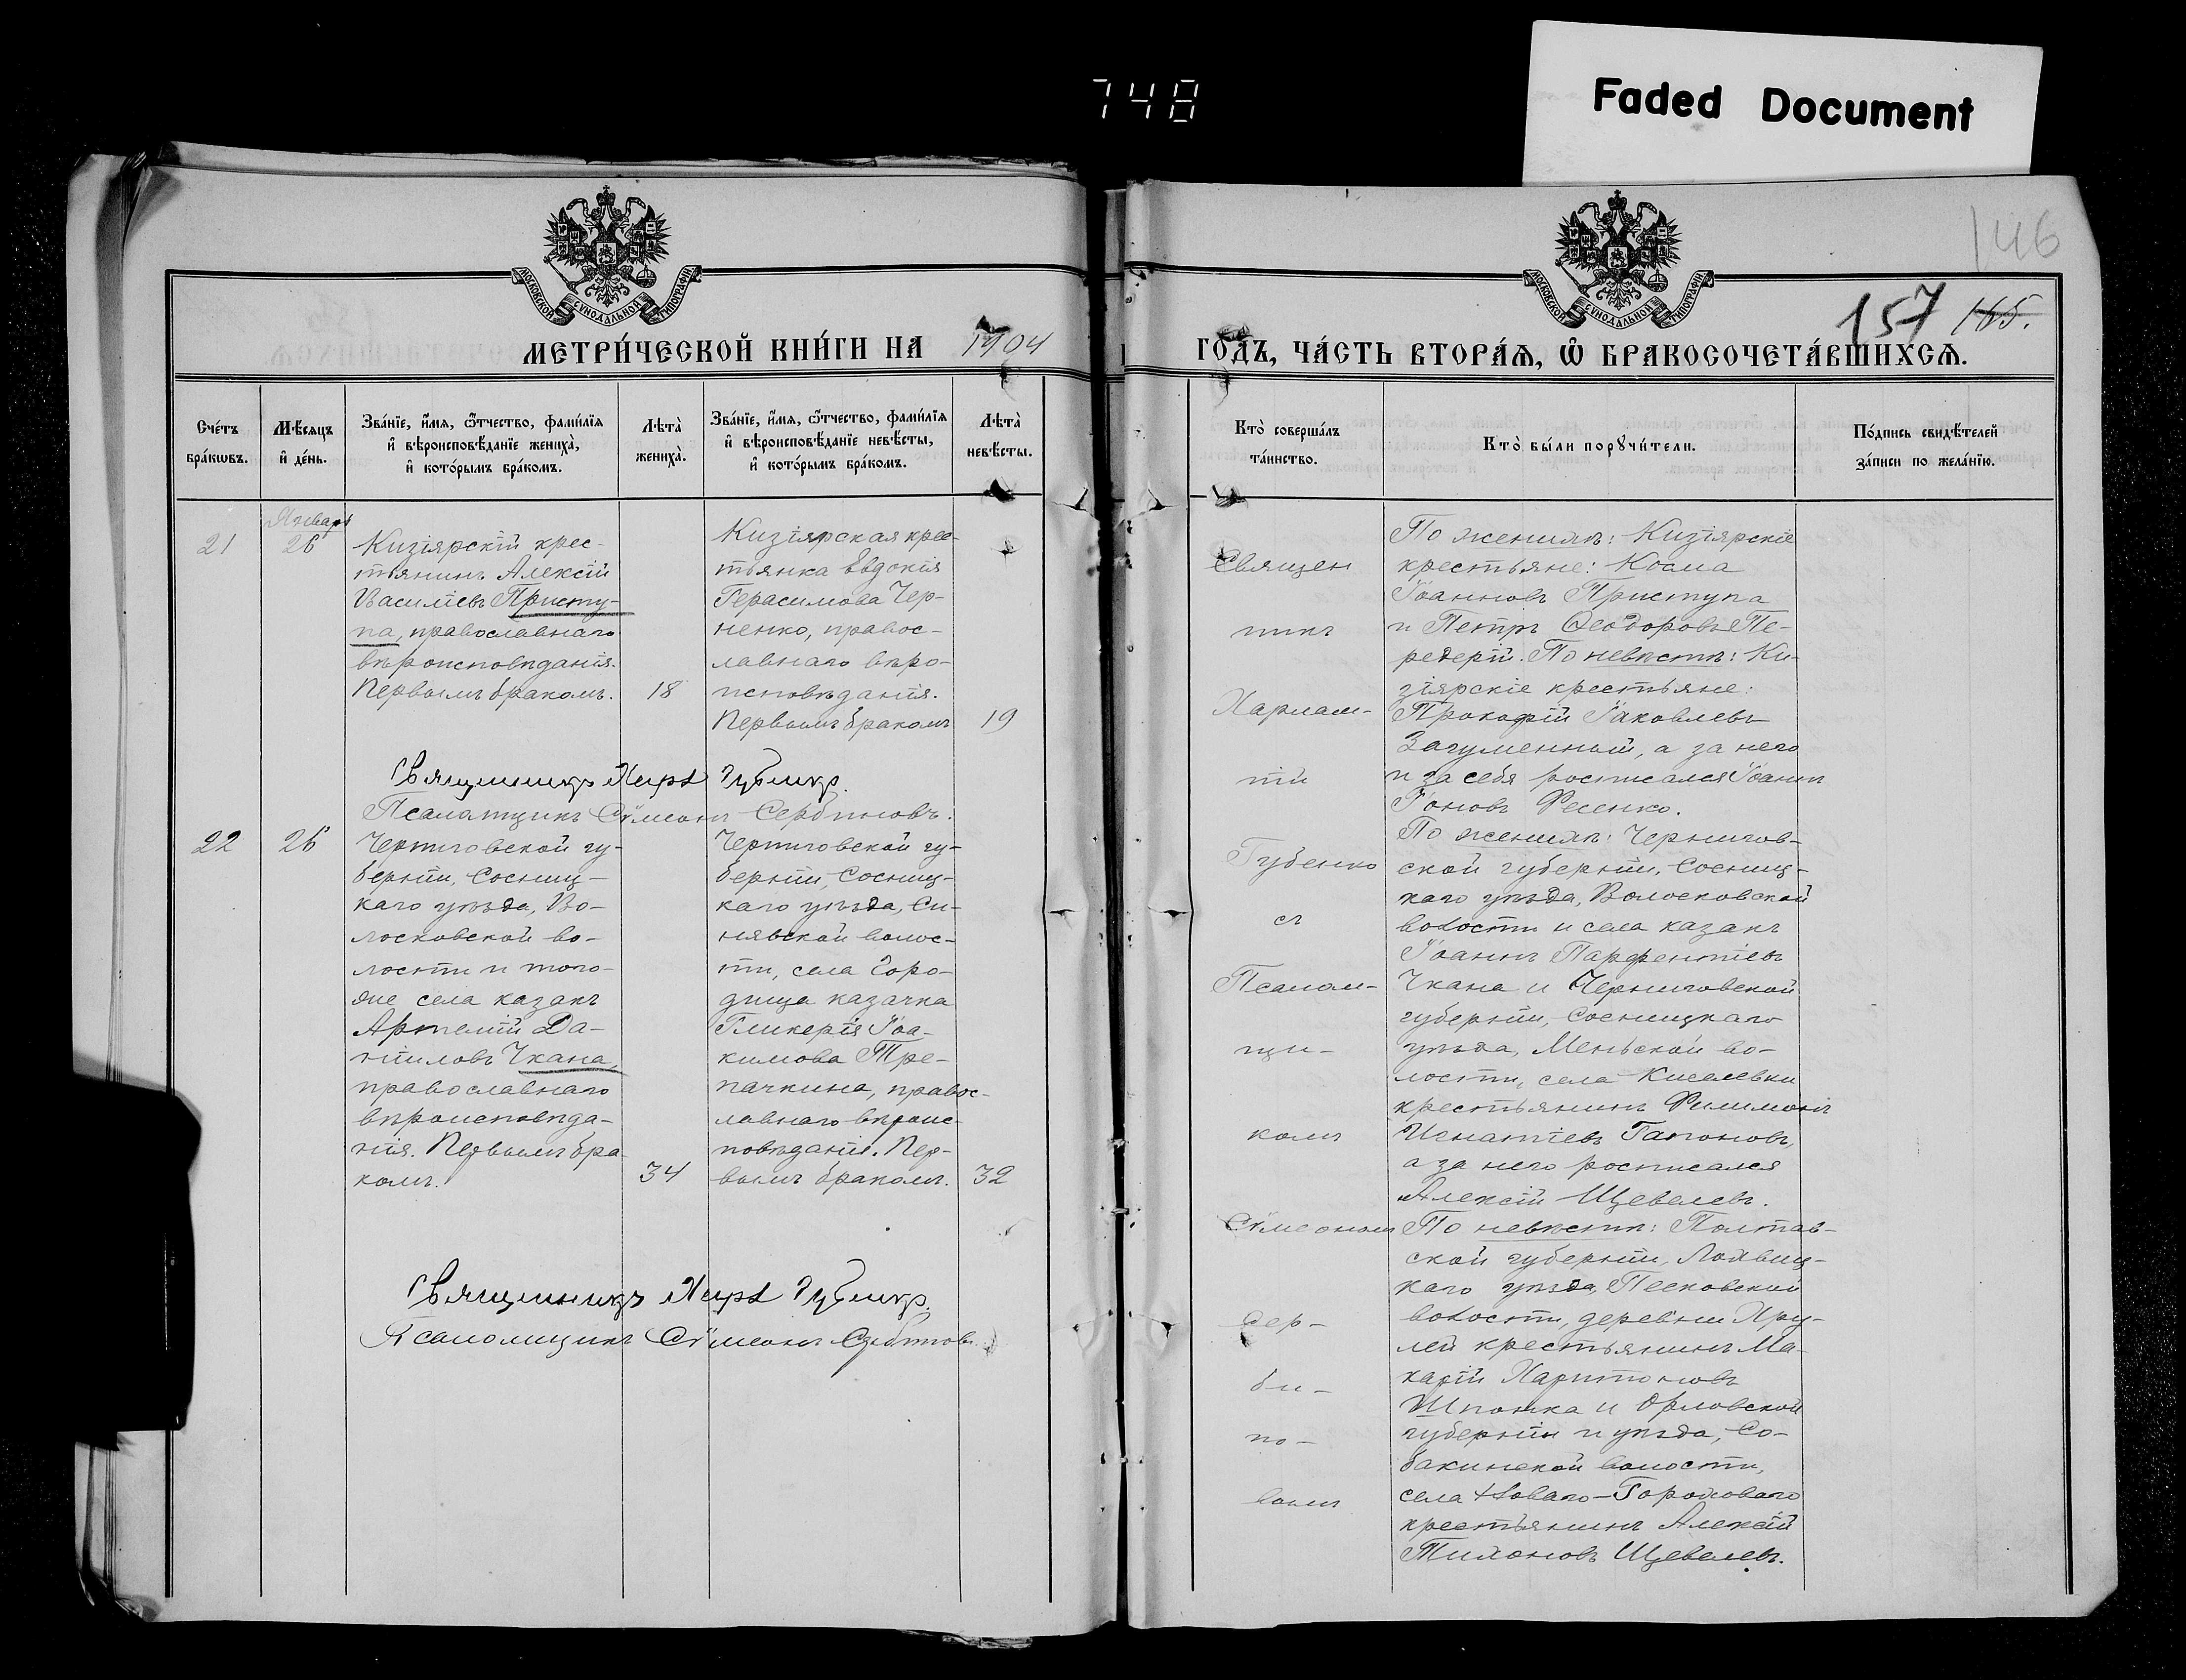 748
Faded Document
146
157 165.
МОСКОВСКОЙ СѴНОДАЛЬНОЙ ТИПОГРАФІИ
МЕТРИ́ЧЕСКОЙ КНИ́ГИ НА 1904
Сче́тъ бра́кѡвъ.
Мѣ́сяцъ и҆ де́нь.
Зва́нїе, и҆́мѧ, ѻ҆́тчество, фами́лїѧ
и҆ вѣроисповѣ́данїе жениха̀,
и҆ кото́рымъ бра́комъ.
Лѣ́та̀ жениха̀.
Зва́нїе, и҆́мѧ, ѻ҆́тчество, фами́лїѧ
и҆ вѣроисповѣ́данїе невѣ́сты,
и҆ кото́рымъ бра́комъ.
Лѣ́та̀ невѣ́сты.
Январь
21
26
Кизіярскій крес-
тьянинъ Алексій
Василіевъ Присту-
па, православнаго
вѣроисповѣданія.
Первымъ бракомъ.
18
Кизіярская крес-
тьянка Евдокія
Герасимова Чер-
ненко, правос-
лавнаго вѣро-
исповѣданія.
Первымъ бракомъ
19
Священникъ Хар.
Псаломщикъ Сѵмеонъ Сербиновъ.
22
26
Черниговской гу-
берніи, Сосниц-
каго уѣзда, Во-
лосковской во-
лости и того-
же села казакъ
Артемій Да-
ниловъ Чкана,
православнаго
вѣроисповѣда-
нія. Первымъ бра-
комъ.
34
Черниговской гу-
берніи, Сосниц-
каго уѣзда, Си-
нявской волос-
ти, села Горо-
дища казачка
Гликерія Іоа-
кимова Тре-
пачкина, правос-
лавнаго вѣроис-
повѣданія. Пер-
вымъ бракомъ.
32
Священникъ Хар.
Псаломщикъ Сѵмеонъ Сербиновъ.
МОСКОВСКОЙ СѴНОДАЛЬНОЙ ТИПОГРАФІИ
ГО́ДЪ, ЧА́СТЬ ВТОРА́Ѧ, Ѡ҆ БРАКОСОЧЕТА́ВШИХСѦ.
Кто̀ соверша́лъ
та́инство.
Кто̀ бы́ли порꙋчи́тели.
По́дпись свидѣ́телей
за́писи по жела́нїю.
Священ
никъ
Харлам-
пій
Губенко
съ
Псалом-
щи-
комъ
Сѵмеономъ
Сер-
би-
но-
вымъ
По женихѣ: Кизіярскіе
крестьяне: Косма
Іоанновъ Приступа
и Петръ Ѳеодоровъ Пе-
редерій. По невѣстѣ: Ки-
зіярскіе крестьяне:
Прокофій Іаковлевъ
Загуменный, а за него
и за себя росписался Іоаннъ
Іоновъ Фесенко.
По женихѣ: Чернигов-
ской губерніи, Сосниц-
каго уѣзда, Волосковской
волости и села казакъ
Іоаннъ Парфентіевъ
Чкана и Черниговской
губерніи, Сосницкаго
уѣзда, Меньской во-
лости, села Киселевки
крестьянинъ Филимонъ
Игнатіевъ Гапоновъ,
а за него росписался
Алексій Щевелевъ.
По невѣстѣ: Полтав-
ской губерніи, Лохвиц-
каго уѣзда, Песковской
волости, деревни Хру-
лей крестьянинъ Ма-
карій Харитоновъ
Шпонка и Орловской
губерніи и уѣзда, Со-
бакинской волости,
села Новаго-Горохового
крестьянинъ Алексій
Тихоновъ Щевелевъ.